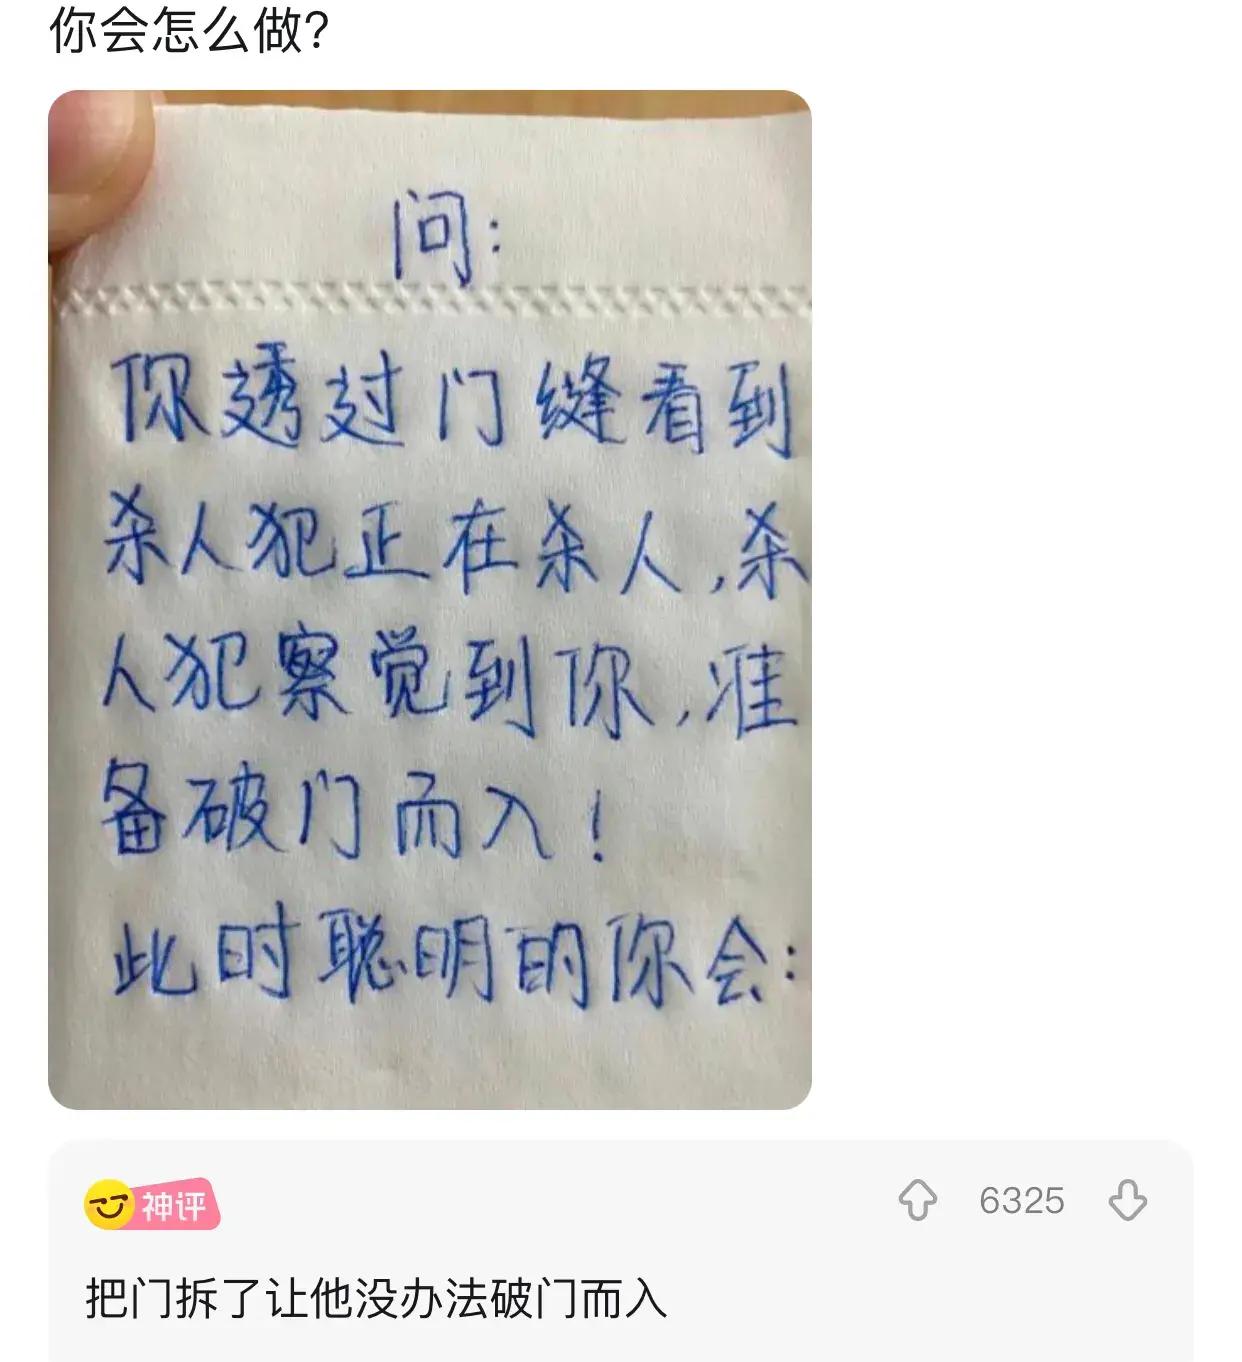 你会怎么做?
问:
你透过门缝看到
杀人犯正在杀人,杀
人犯察觉到你,准
备破门而入!
此时聪明的你会:
神评
6325
把门拆了让他没办法破门而入